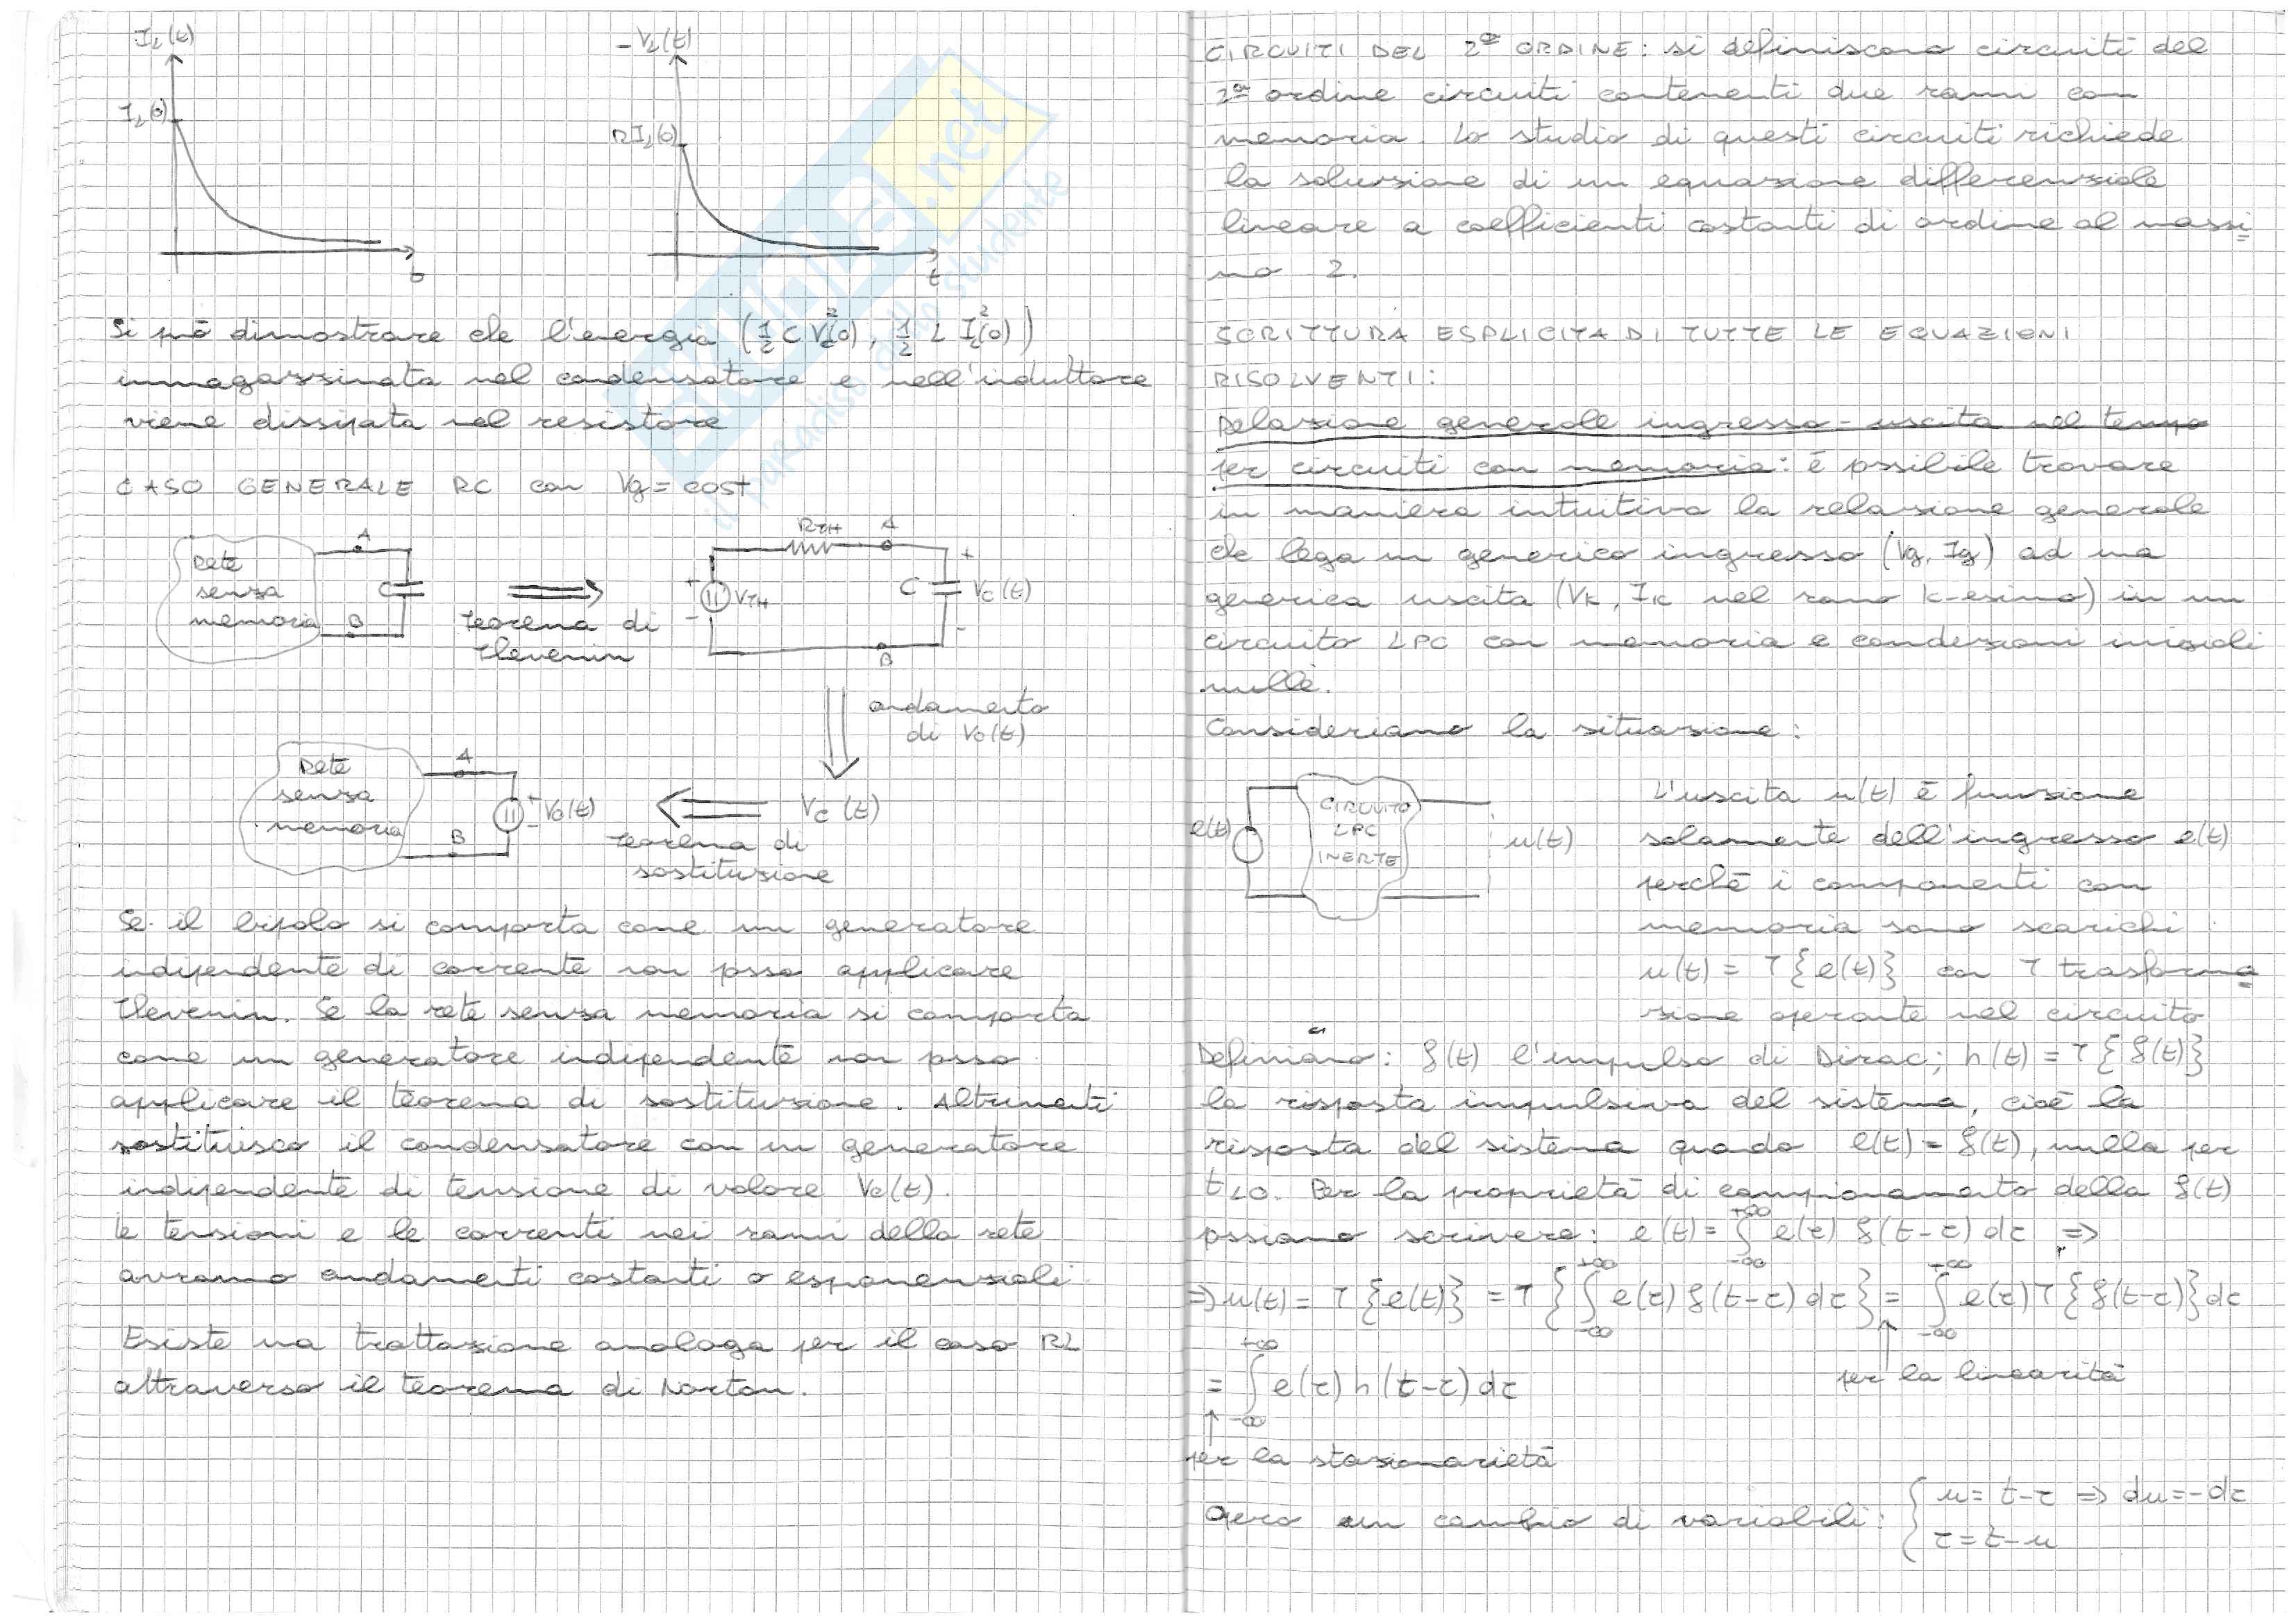 I_L(t)
I_L(0)
t
-V_L(t)
RI_L(0)
t
Si può dimostrare che l'energia (1/2 C V_C²(0), 1/2 L I_L²(0))
immagazzinata nel condensatore e nell'induttore
viene dissipata nel resistore
CASO GENERALE RC con Vg = cost
Rete
senza
memoria
A
B
C
Teorema di
Thevenin
R_TH
A
V_TH
C
V_C(t)
B
andamento
di V_C(t)
Rete
senza
memoria
A
B
V_C(t)
Teorema di
sostituzione
V_C(t)
Se il bipolo si comporta come un generatore
indipendente di corrente non posso applicare
Thevenin. Se la rete senza memoria si comporta
come un generatore indipendente non posso
applicare il teorema di sostituzione. Altrimenti
sostituisco il condensatore con un generatore
indipendente di tensione di valore Vc(t).
Le tensioni e le correnti nei rami della rete
avranno andamenti costanti o esponenziali
Esiste una trattazione analoga per il caso RL
attraverso il teorema di Norton.
CIRCUITI DEL 2º ORDINE: si definiscono circuiti del
2º ordine circuiti contenenti due rami con
memoria. Lo studio di questi circuiti richiede
la soluzione di un equazione differenziale
lineare a coefficienti costanti di ordine al massi
mo 2.
SCRITTURA ESPLICITA DI TUTTE LE EQUAZIONI
RISOLVENTI:
Relazione generale ingresso-uscita nel tempo
per circuiti con memoria: è possibile trovare
in maniera intuitiva la relazione generale
che lega un generico ingresso (Vg, Ig) ad una
generica uscita (V_K, I_K nel ramo k-esimo) in un
circuito LPC con memoria e condizioni iniziali
nulle.
Consideriamo la situazione:
e(t)
CIRCUITO
LPC
INERTE
u(t)
L'uscita u(t) è funzione
solamente dell'ingresso e(t)
perchè i componenti con
memoria sono scarichi
u(t) = T{e(t)} con T trasforma
zione operante nel circuito
Definiamo: δ(t) l'impulso di Dirac; h(t) = T{δ(t)}
la risposta impulsiva del sistema, cioè la
risposta del sistema quando e(t) = δ(t), nulla per
t<0. Per la proprietà di campionamento della δ(t)
possiamo scrivere: e(t) = ∫_{-∞}^{+∞} e(τ) δ(t-τ) dτ ⇒
⇒ u(t) = T{e(t)} = T{∫_{-∞}^{+∞} e(τ) δ(t-τ) dτ} = ∫_{-∞}^{+∞} e(τ) T{δ(t-τ)} dτ
per la linearità
= ∫_{-∞}^{+∞} e(τ) h(t-τ) dτ
per la stazionarietà
Opero un cambio di variabili: { u = t-τ ⇒ du = -dτ
τ = t-u
.net
il paradiso dello studente